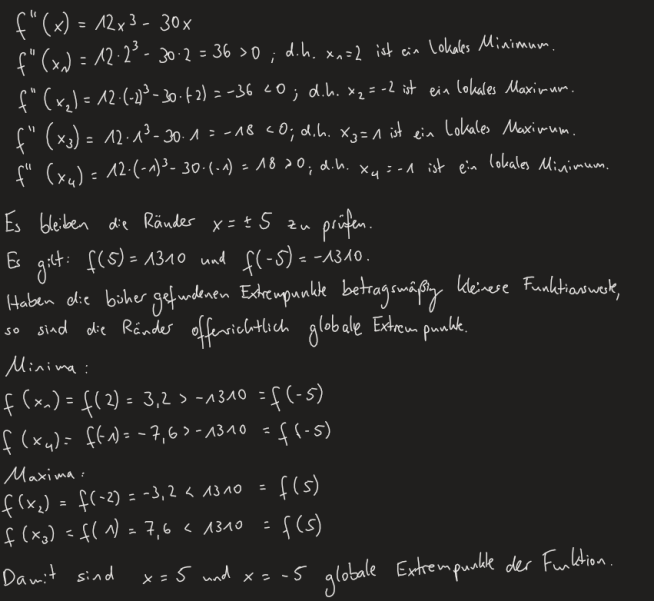 f''(x) = 12x³ - 30x
f''(x₁) = 12·2³ - 30·2 = 36 > 0 ; d.h. x₁=2 ist ein lokales Minimum.
f''(x₂) = 12·(-2)³ - 30·(-2) = -36 < 0 ; d.h. x₂=-2 ist ein lokales Maximum.
f''(x₃) = 12·1³ - 30·1 = -18 < 0; d.h. x₃=1 ist ein lokales Maximum.
f''(x₄) = 12·(-1)³ - 30·(-1) = 18 > 0; d.h. x₄=-1 ist ein lokales Minimum.
Es bleiben die Ränder x = ± 5 zu prüfen.
Es gilt: f(5) = 1310 und f(-5) = -1310.
Haben die bisher gefundenen Extrempunkte betragsmäßig kleinere Funktionswerte,
so sind die Ränder offensichtlich globale Extrempunkte.
Minima:
f(x₁) = f(2) = 3,2 > -1310 = f(-5)
f(x₄) = f(-1) = -7,6 > -1310 = f(-5)
Maxima:
f(x₂) = f(-2) = -3,2 < 1310 = f(5)
f(x₃) = f(1) = 7,6 < 1310 = f(5)
Damit sind x = 5 und x = -5 globale Extrempunkte der Funktion.